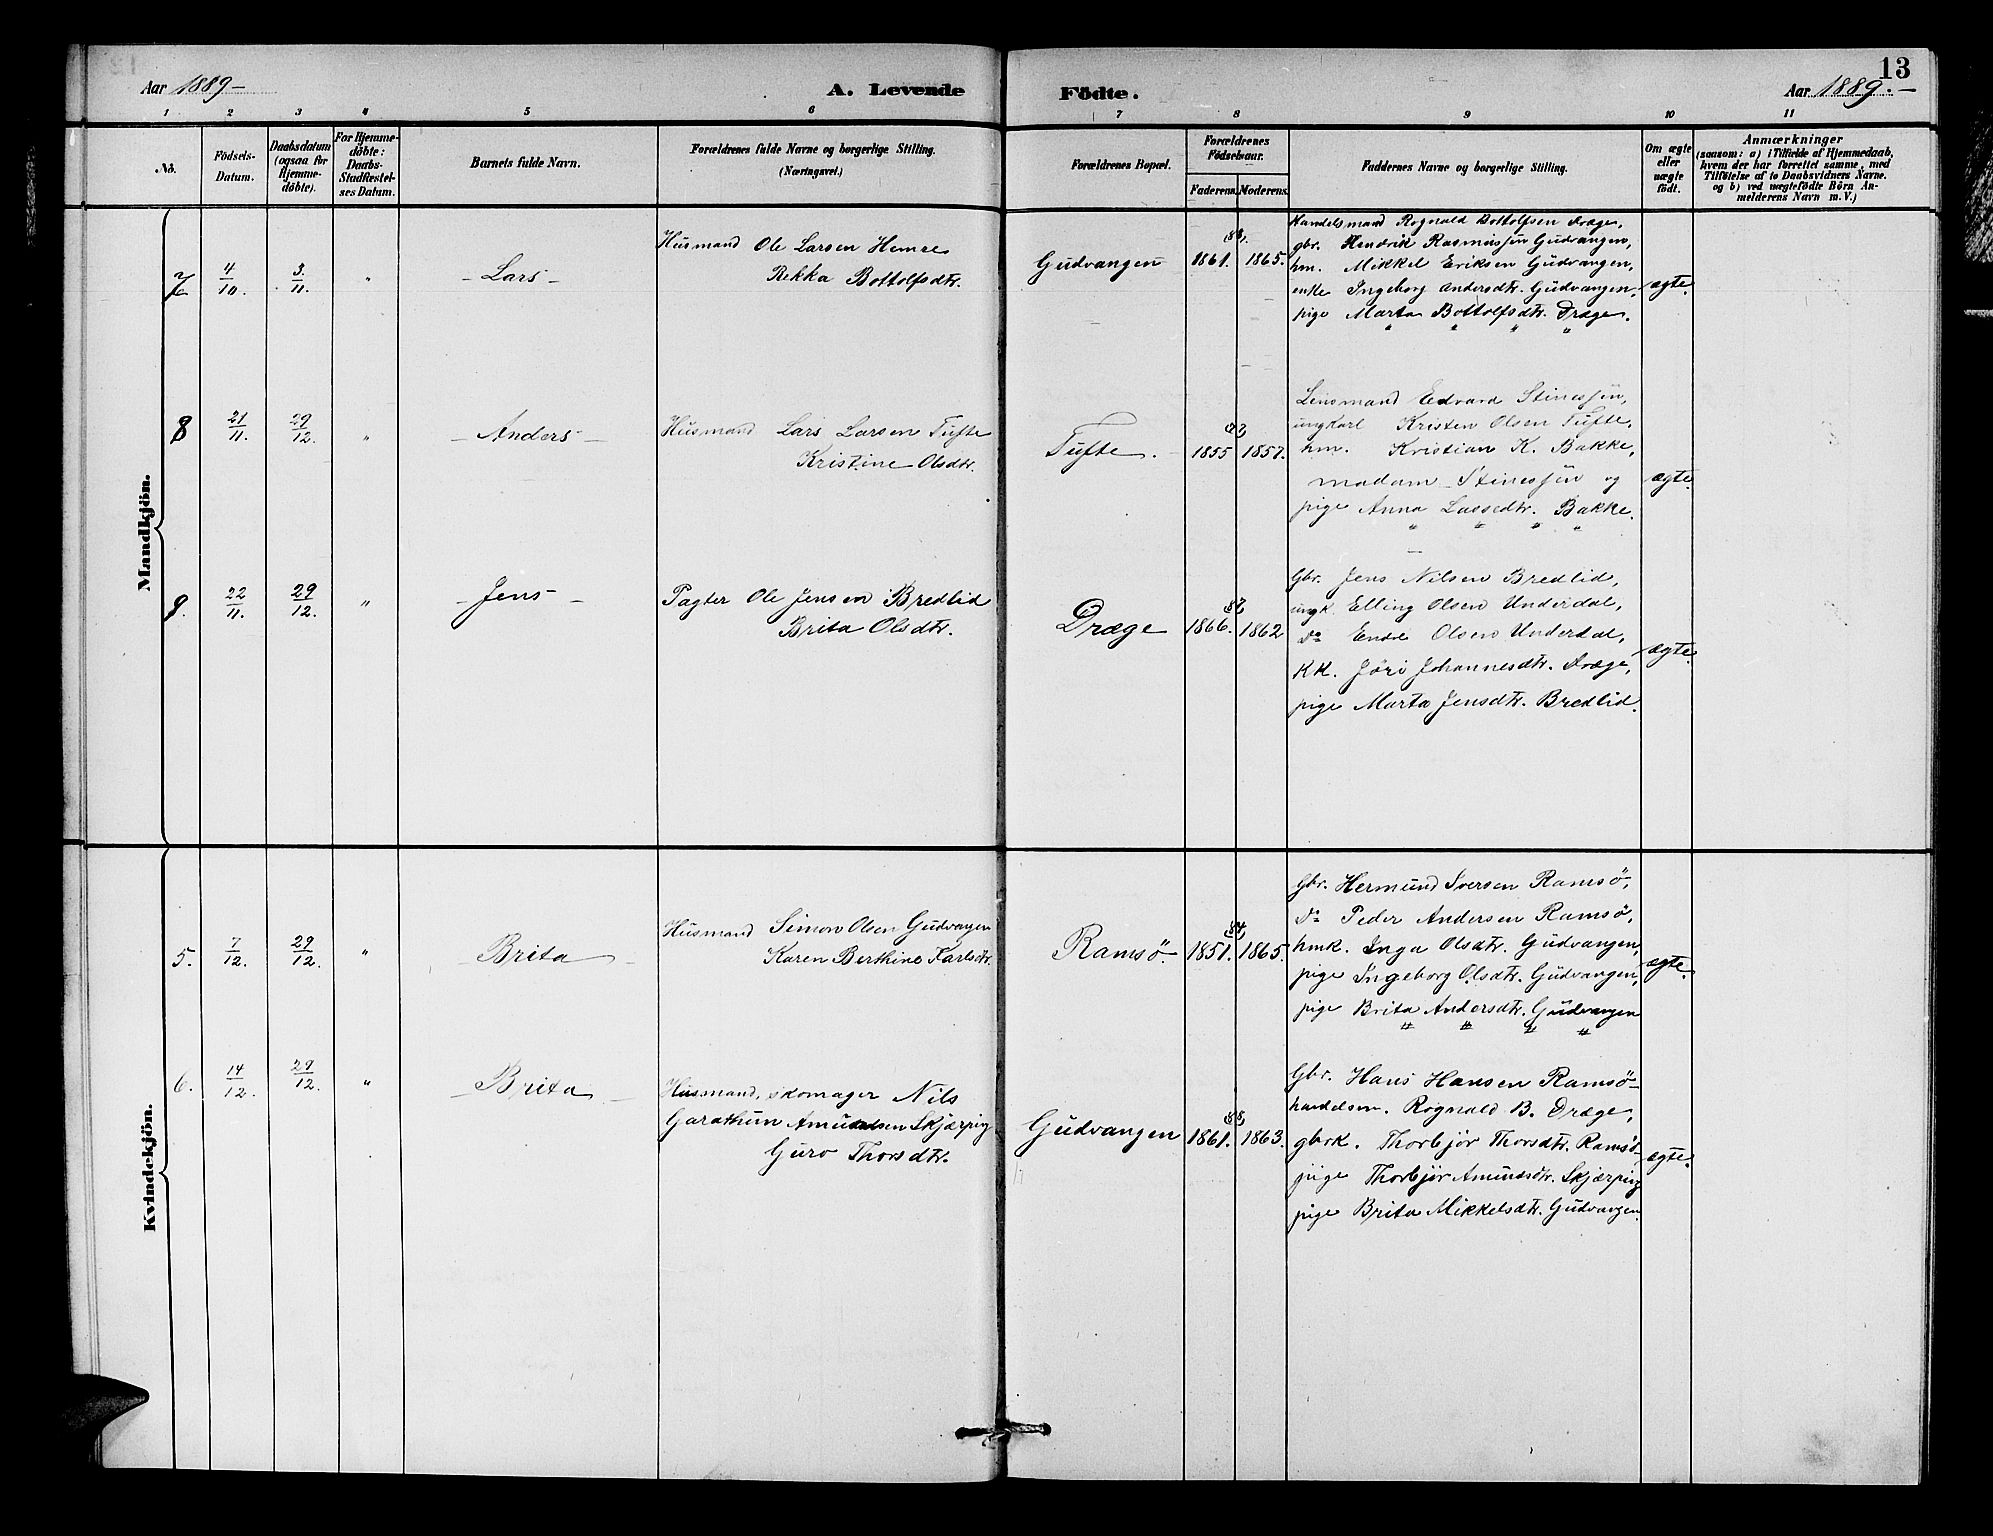 Aar 1889 – A. Levende Födte. Aar 1889. –
13
1 2 3 4 5 6 7 8 9 10 11
No.
Födsels-
Datum.
Daabsdatum
(ogsaa for
Hjemme-
döbte).
For Hjemme-
döbte:
Daabs-
Stadfæstel-
ses Datum.
Barnets fulde Navn.
Forældrenes fulde Navne og borgerlige Stilling.
(Næringsvei.)
Forældrenes Bopæl.
Forældrenes
Födselsaar.
Faderens. Moderens.
Faddernes Navne og borgerlige Stilling.
Om ægte
eller
uægte
födt.
Anmærkninger
(saasom: a) i Tilfælde af Hjemmedaab,
hvem der har forrettet samme, med
Tilföielse af to Daabsvidners Navne.
og b) ved uægtefödte Börn An-
melderens Navn m. V.)
Mandkjön.
7 4/10 3/11. " – Lars –
Husmand Ole Larsen Hemre
Rekka Bottolfsdtr.
Gudvangen 1861. 88, 1865.
Handelsmand Rognald Bottolfsen Dræge,
gbr. Hendrik Rasmussen Gudvangen,
hm. Mikkel Eriksen Gudvangen,
enke Ingeborg Andersdtr. Gudvangen,
pige Marta Bottolfsdtr. Dræge.
" " " "
ægte.
8 21/11. 29/12. " – Anders –
Husmand Lars Larsen Tufte
Kristine Olsdtr.
Tufte. 1855 1857.
Lensmand Edvard Stinessen,
ungkarl Kristen Olsen Tufte,
hm. Kristian K. Bakke,
madam Stinessen og
pige Anna Lassedtr. Bakke.
" " " "
ægte.
9. 22/11. 29/12. " – Jens –
Pagter Ole Jensen Bredlid
Brita Olsdtr.
Dræge 1866. 87, 1862
Gbr. Jens Nilsen Bredlid,
ungk. Elling Olsen Underdal,
do Endre Olsen Underdal,
KK. Jöri Johannesdtr. Dræge,
pige Marta Jensdtr. Bredlid.
ægte.
Kvindekjön.
5. 7/12. 29/12. " – Brita –
Husmand Simon Olsen Gudvangen
Karen Berthine Karlsdtr.
Ramsö. 1851. 84, 1865.
Gbr. Hermund Iversen Ramsö,
do Peder Andersen Ramsö,
hmk. Inga Olsdtr. Gudvangen,
pige Ingeborg Olsdtr. Gudvangen,
pige Brita Andersdtr. Gudvangen
" " " "
ægte.
6. 14/12. 29/12. " – Brita –
Husmand, skomager Nils
Garathun Amundsen Skjærping
Guro Thorsdtr.
Gudvangen 1861. 88, 1863.
Gbr. Hans Hansen Ramsö
handelsm. Rognald B. Dræge,
gbrk. Thorbjör Thorsdtr. Ramsö
pige Thorbjör Amundsdtr. Skjærping
pige Brita Mikkelsdtr. Gudvangen.
ægte.